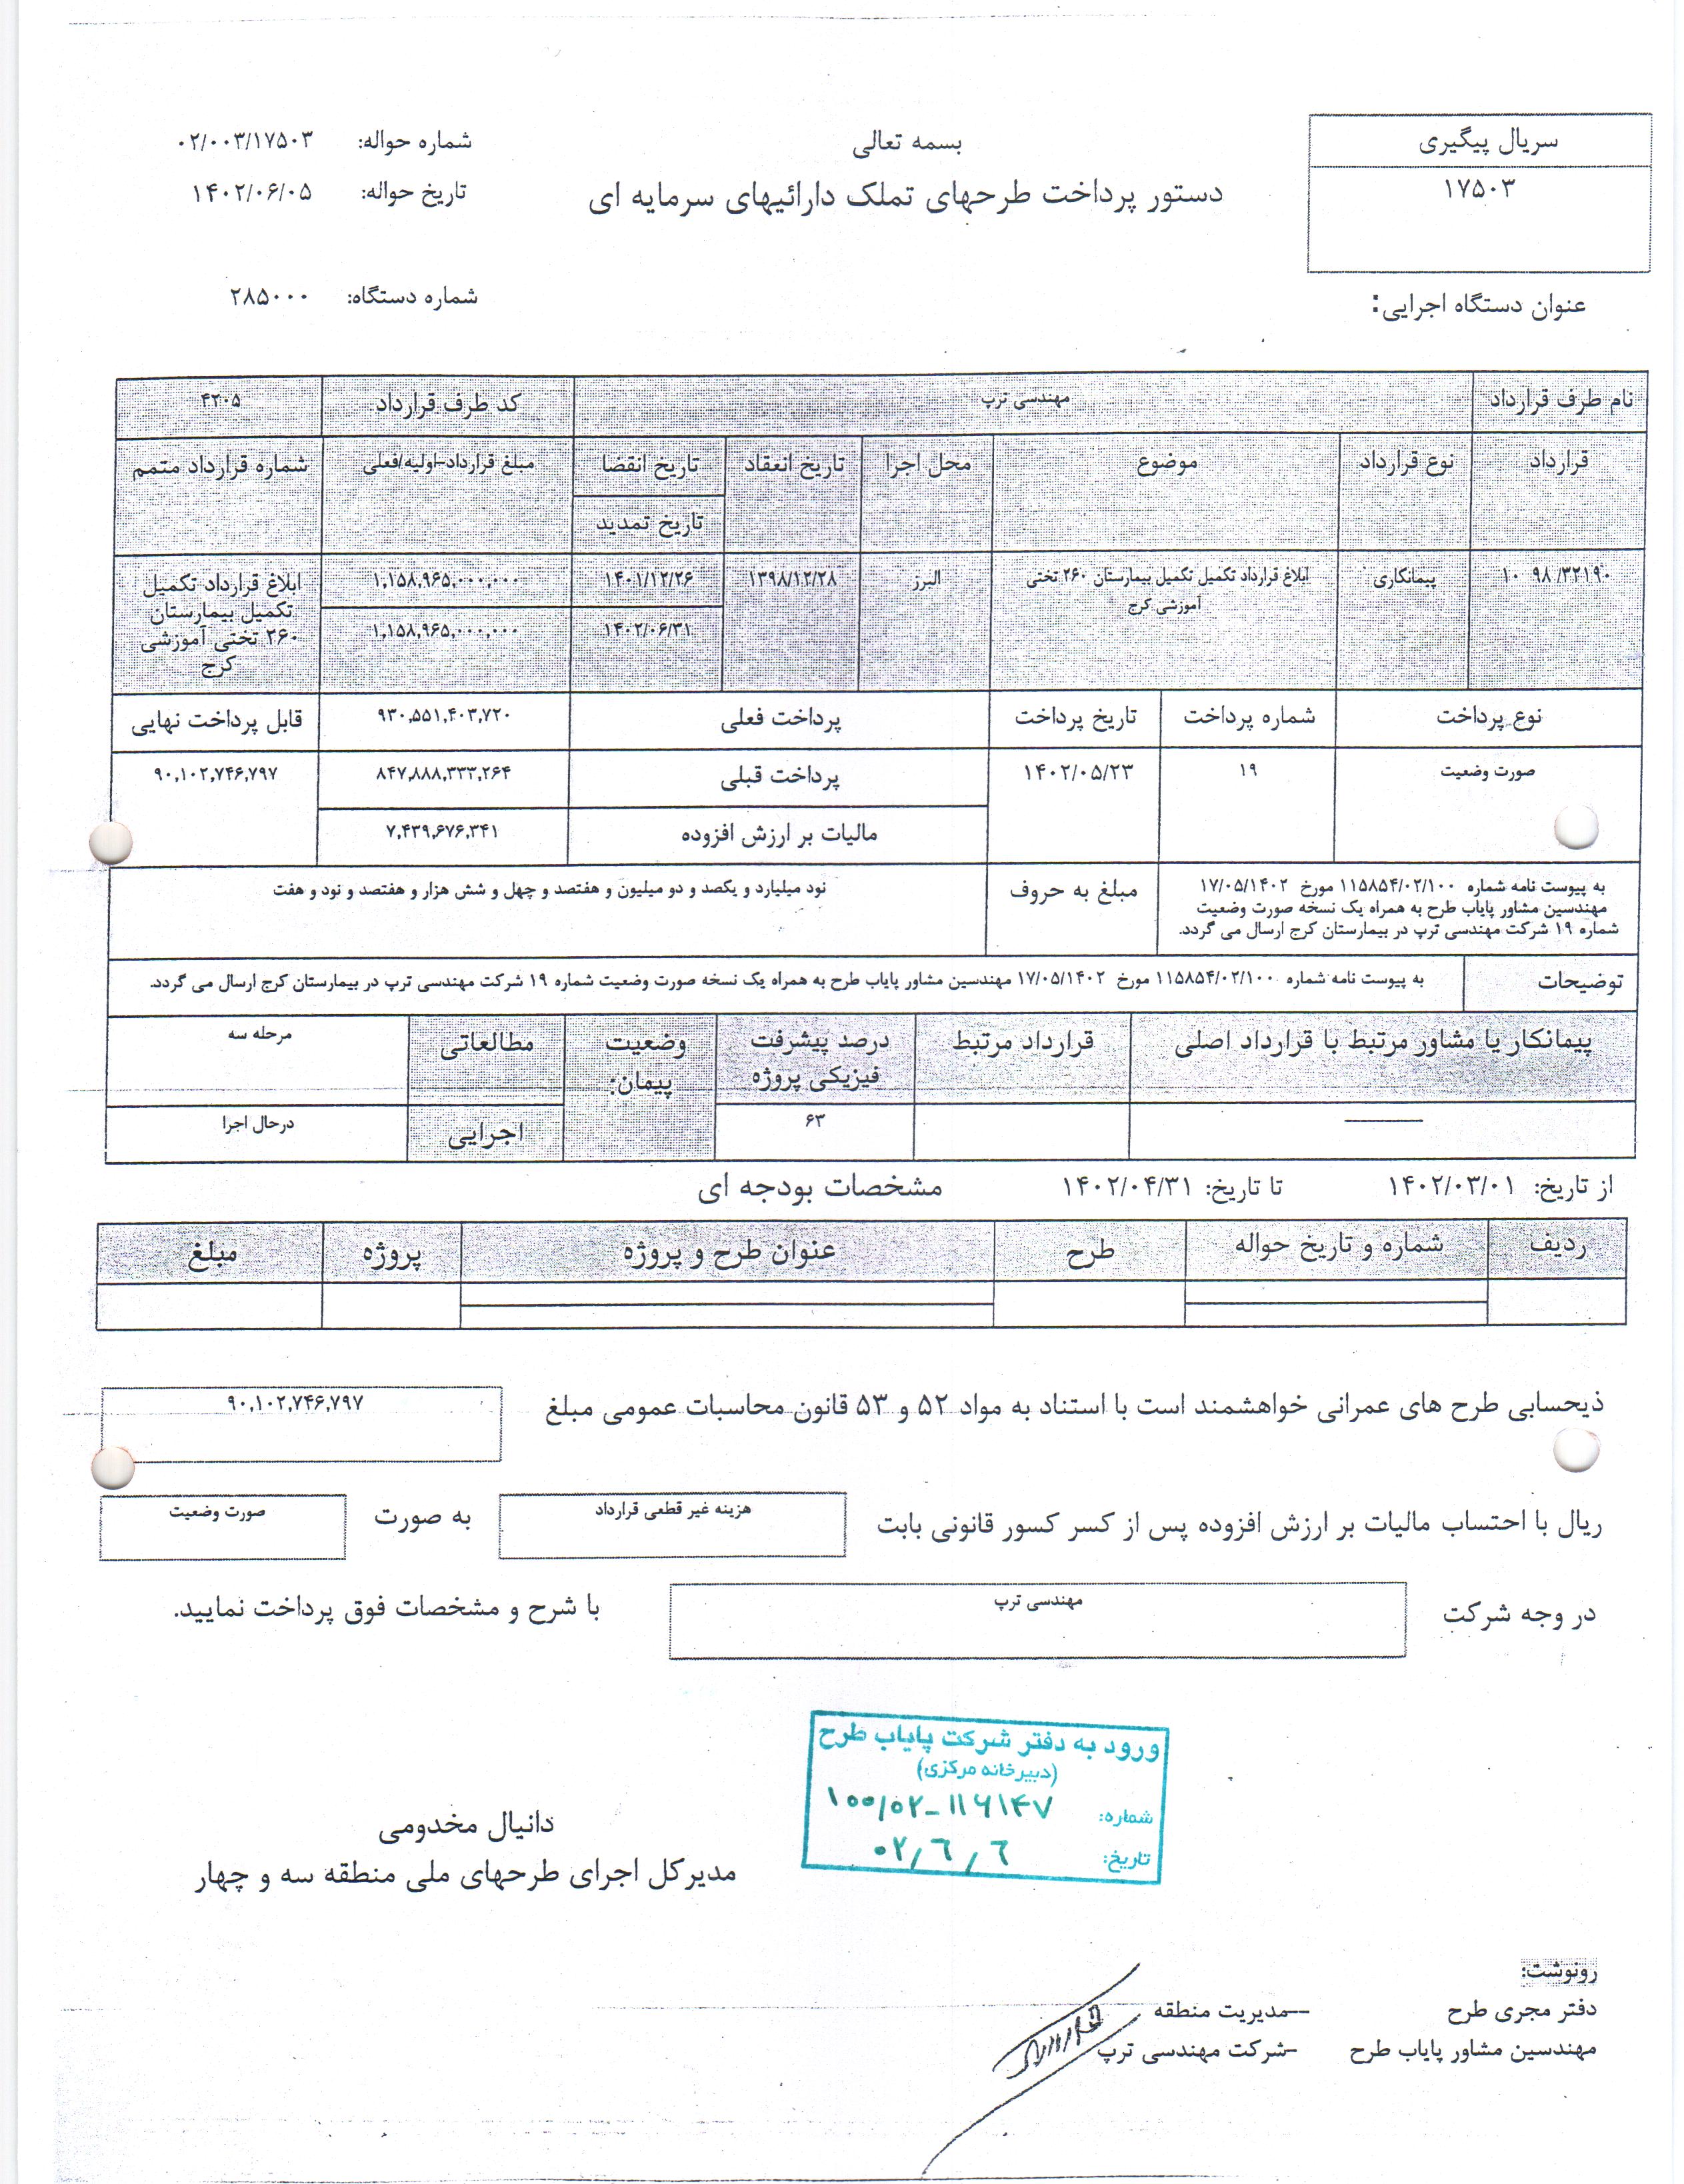 سریال پیگیری
۱۷۵۰۳
بسمه تعالی
دستور پرداخت طرحهای تملک دارائیهای سرمایه ای
شماره حواله: ۰۲/۰۰۳/۱۷۵۰۳
تاریخ حواله: ۱۴۰۲/۰۶/۰۵
عنوان دستگاه اجرایی:
شماره دستگاه: ۲۸۵۰۰۰
نام طرف قرارداد مهندسی ترپ کد طرف قرارداد ۴۲۰۵
قرارداد نوع قرارداد موضوع محل اجرا تاریخ انعقاد تاریخ انقضا مبلغ قرارداد-اولیه/فعلی شماره قرارداد متمم
تاریخ تمدید
۱۰ ۹۸/۳۲۱۹۰ پیمانکاری ابلاغ قرارداد تکمیل تکمیل بیمارستان ۲۶۰ تختی البرز ۱۳۹۸/۱۲/۲۸ ۱۴۰۱/۱۲/۲۶ ۱,۱۵۸,۹۶۵,۰۰۰,۰۰۰ ابلاغ قرارداد تکمیل
آموزشی کرج تکمیل بیمارستان
۱۴۰۲/۰۶/۳۱ ۱,۱۵۸,۹۶۵,۰۰۰,۰۰۰ ۲۶۰ تختی آموزشی
کرج
نوع پرداخت شماره پرداخت تاریخ پرداخت پرداخت فعلی ۹۳۰,۵۵۱,۴۰۳,۷۲۰ قابل پرداخت نهایی
صورت وضعیت ۱۹ ۱۴۰۲/۰۵/۲۳ پرداخت قبلی ۸۴۷,۸۸۸,۳۳۳,۲۶۴ ۹۰,۱۰۲,۷۴۶,۷۹۷
مالیات بر ارزش افزوده ۷,۴۳۹,۶۷۶,۳۴۱
به پیوست نامه شماره ۱۱۵۸۵۴/۰۲/۱۰۰ مورخ ۱۷/۰۵/۱۴۰۲
مهندسین مشاور پایاب طرح به همراه یک نسخه صورت وضعیت
شماره ۱۹ شرکت مهندسی ترپ در بیمارستان کرج ارسال می گردد.
مبلغ به حروف نود میلیارد و یکصد و دو میلیون و هفتصد و چهل و شش هزار و هفتصد و نود و هفت
توضیحات به پیوست نامه شماره ۱۱۵۸۵۴/۰۲/۱۰۰ مورخ ۱۷/۰۵/۱۴۰۲ مهندسین مشاور پایاب طرح به همراه یک نسخه صورت وضعیت شماره ۱۹ شرکت مهندسی ترپ در بیمارستان کرج ارسال می گردد.
پیمانکار یا مشاور مرتبط با قرارداد اصلی قرارداد مرتبط درصد پیشرفت وضعیت مطالعاتی مرحله سه
فیزیکی پروژه پیمان:
۶۳ اجرایی درحال اجرا
از تاریخ: ۱۴۰۲/۰۳/۰۱ تا تاریخ: ۱۴۰۲/۰۴/۳۱ مشخصات بودجه ای
ردیف شماره و تاریخ حواله طرح عنوان طرح و پروژه پروژه مبلغ
ذیحسابی طرح های عمرانی خواهشمند است با استناد به مواد ۵۲ و ۵۳ قانون محاسبات عمومی مبلغ ۹۰,۱۰۲,۷۴۶,۷۹۷
ریال با احتساب مالیات بر ارزش افزوده پس از کسر کسور قانونی بابت هزینه غیر قطعی قرارداد به صورت صورت وضعیت
در وجه شرکت مهندسی ترپ با شرح و مشخصات فوق پرداخت نمایید.
ورود به دفتر شرکت پایاب طرح
(دبیرخانه مرکزی)
شماره: ۱۰۰/۰۲-۱۱۶۱۴۷
تاریخ: ۰۲/۶/۶
دانیال مخدومی
مدیرکل اجرای طرحهای ملی منطقه سه و چهار
رونوشت:
دفتر مجری طرح --مدیریت منطقه
مهندسین مشاور پایاب طرح -شرکت مهندسی ترپ